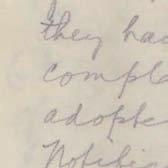 they had
compl
adopte
Notifi